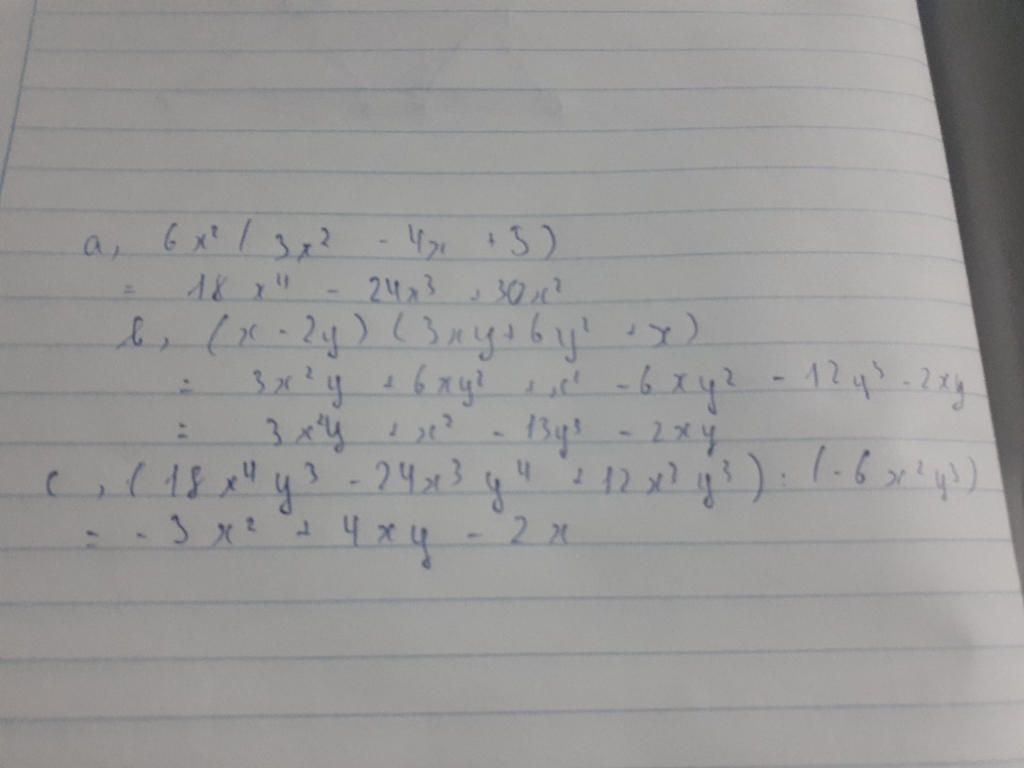 a, 6x² ( 3x² - 4x + 5 )
= 18x⁴ - 24x³ + 30x²
b, (x - 2y) (3xy + 6y² + x)
= 3x²y + 6xy² + x² - 6xy² - 12y³ - 2xy
= 3x²y + x² - 13y³ - 2xy
c, (18x⁴y³ - 24x³y⁴ + 12x³y³) : (-6x²y³)
= -3x² + 4xy - 2x